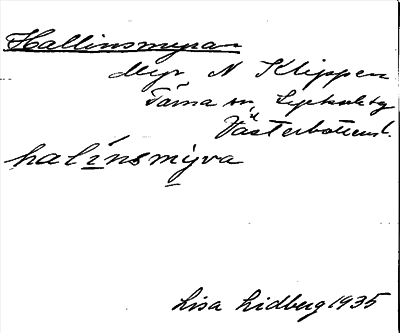 Hallinsmyran
Myr, N Klippen
Tärna sn, Lycksele tg
Västerbottens l.
halínsmỳra
Lisa Lidberg 1935